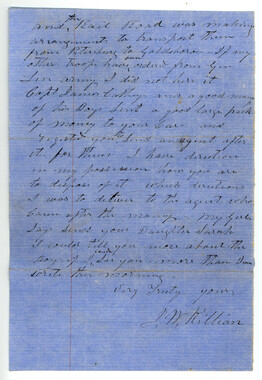 and the Rail Road was making
arrangements to transport them
from Petersburg to Goldsboro If any
other troops have come orders from Gen
Lee army I did not see it
Capt James and a good many
of his Boys sent a good large pack
of money to your care and
request you send an agent after
it for them I have directions
in my possession how you are
to dispose of it which directions
I was to deliver to the agent who
came after the money My Girls
Say send your Daughter Sarah
I could tell you more about the
boys if I see you more than I can
write this morning
Very Truly yours
J. W. Killian